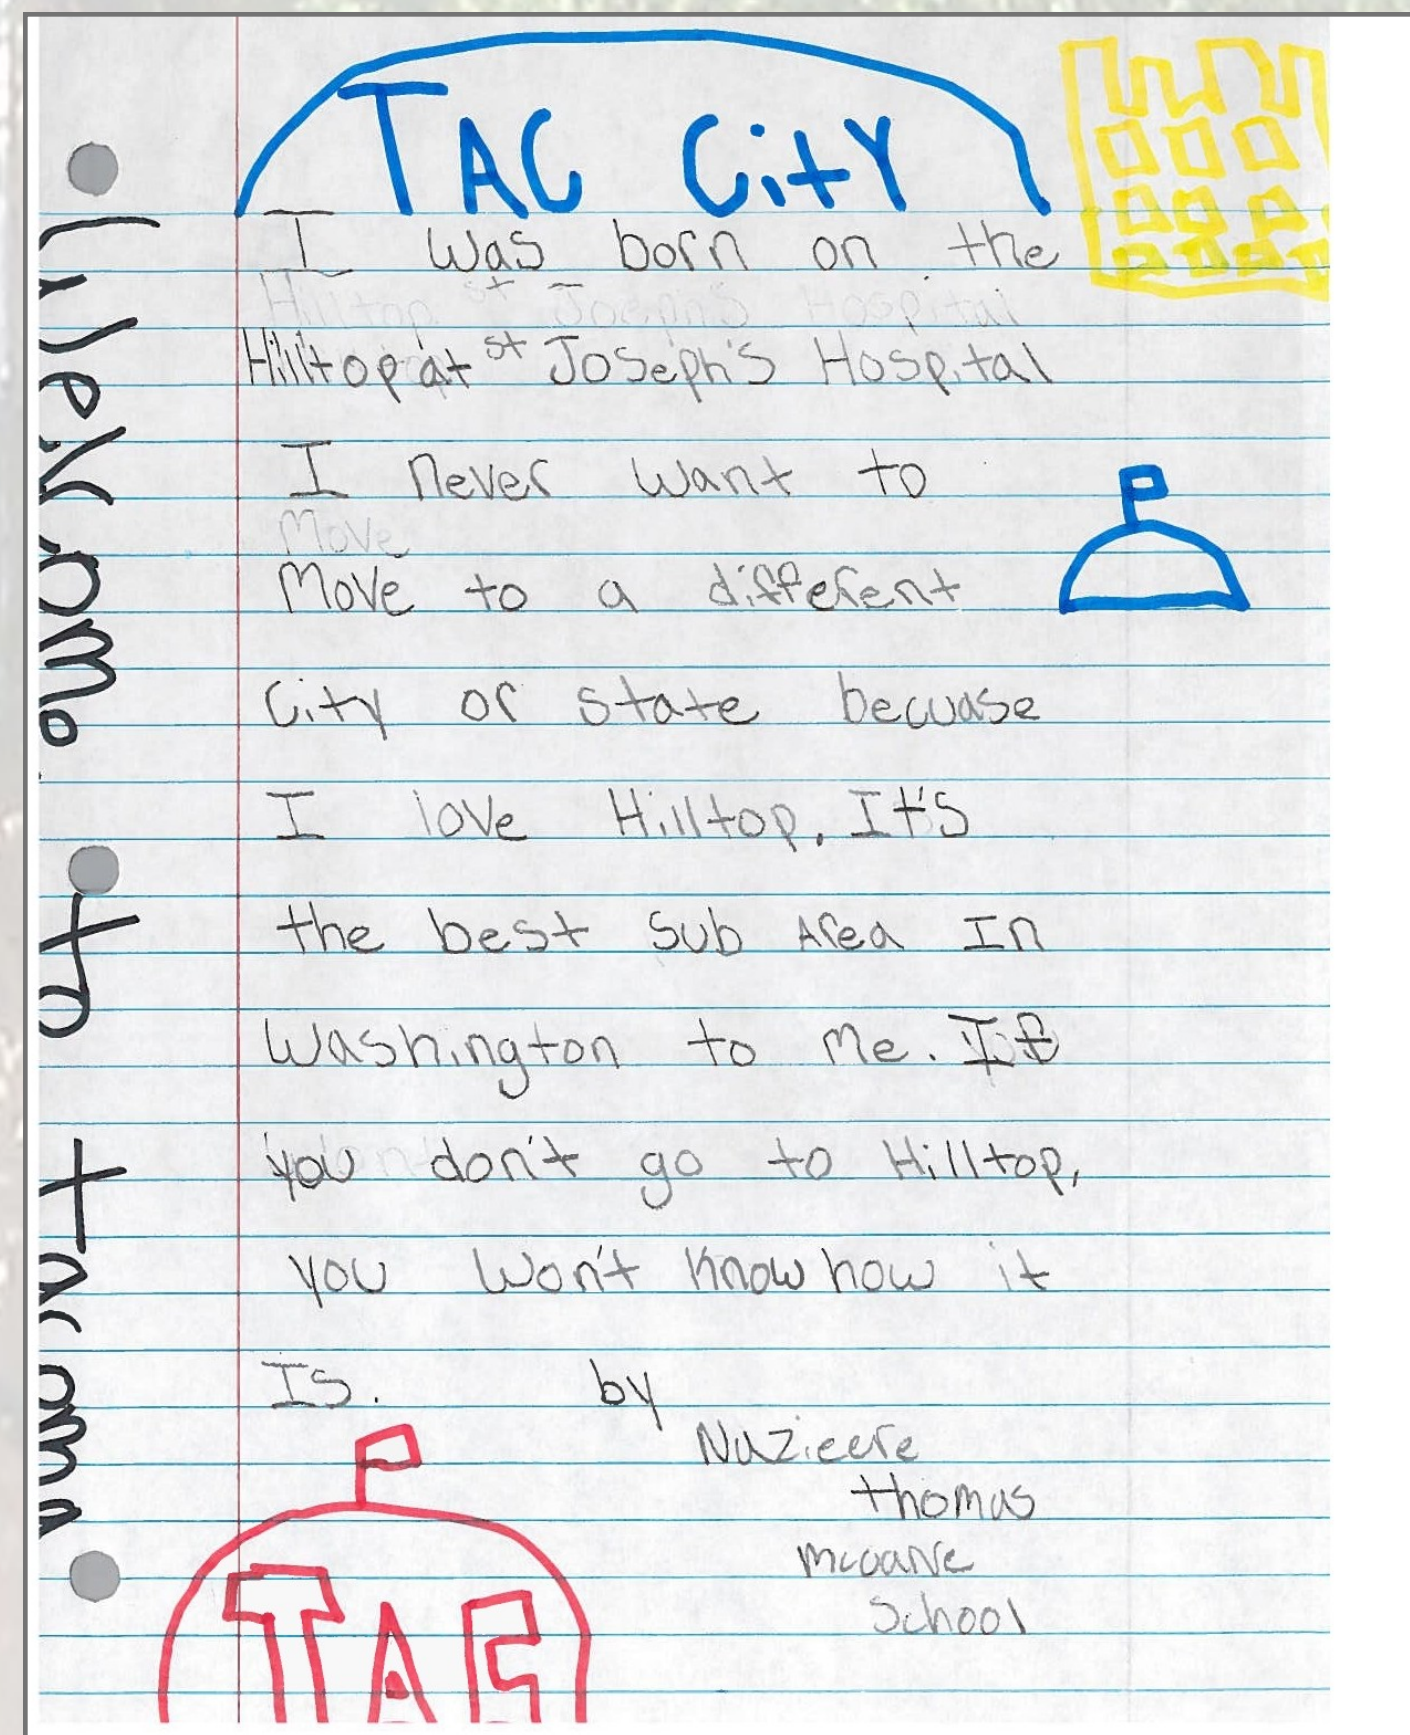 TAC City
I was born on the
Hilltop at st Joseph's Hospital
I never want to
Move to a different
City or state becuase
I love Hilltop. It's
the best sub Area In
Washington to me. If
you don't go to Hilltop,
you won't know how it
Is. by
Nazieere
thomas
School
TAC
Welcome to tacoma